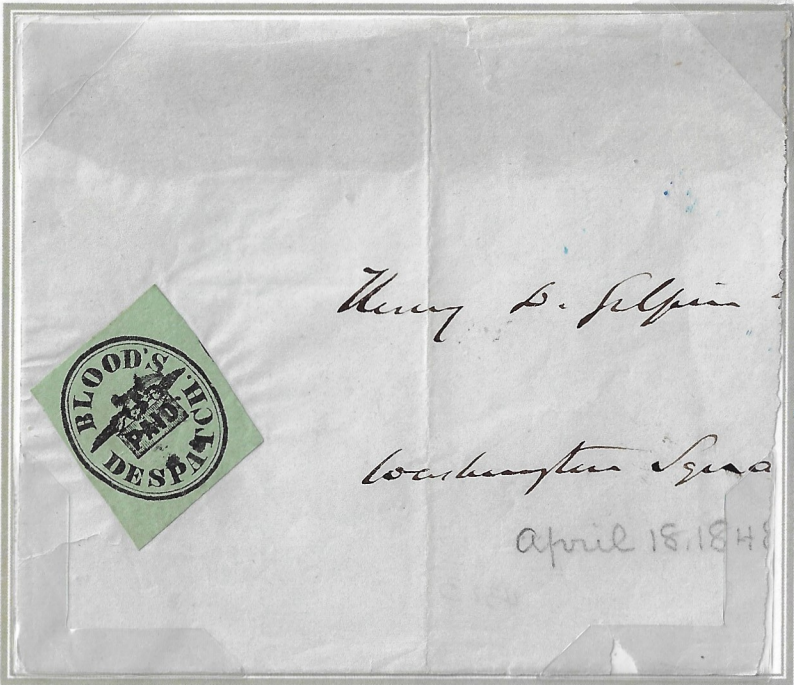 BLOOD'S
PAID.
DESPATCH.
Henry D. Gilpin
Washington Squa
April 18, 184